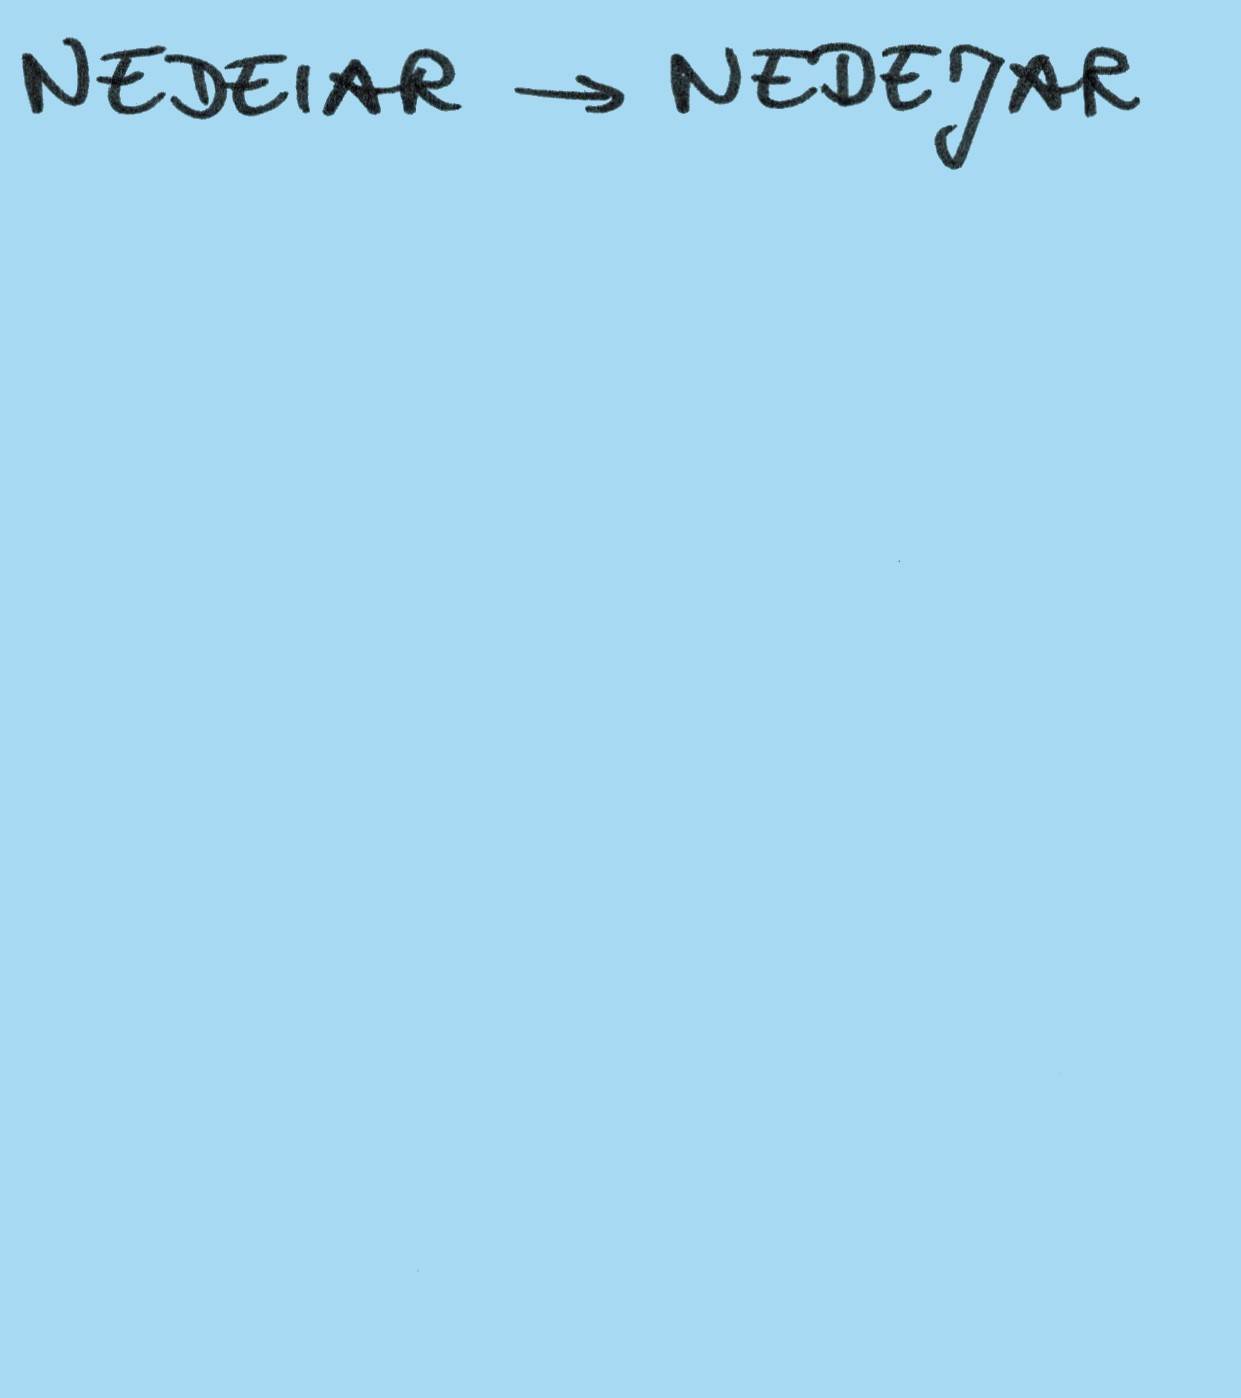 NEDEIAR → NEDEJAR